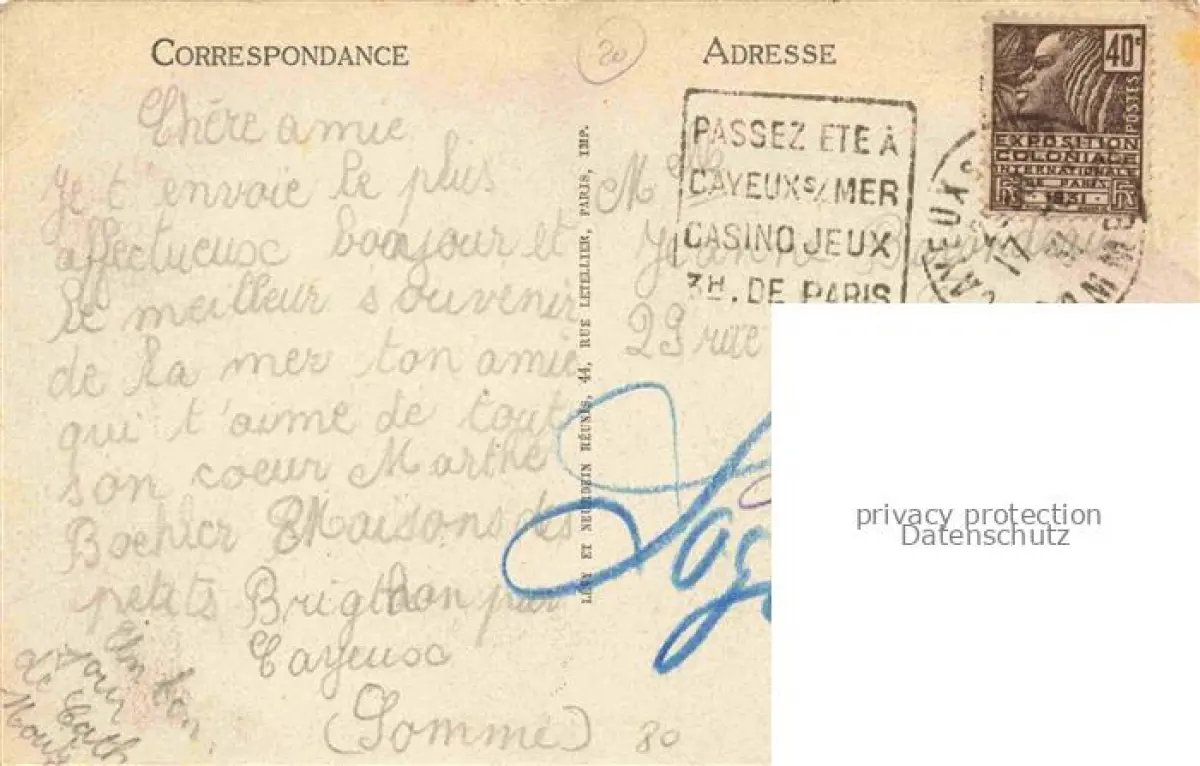 CORRESPONDANCE
20
ADRESSE
40c
POSTES
EXPOSITION
COLONIALE
INTERNATIONALE
DE PARIS
1931
PASSEZ ETE À
CAYEUX S/ MER
CASINO JEUX
3H. DE PARIS
CAYEUX S
17
Chère amie
je t'envoie le plus
affectueusc bonjour et
le meilleur souvenir
de la mer ton amie
qui t'aime de tout
son coeur Marthe
petits Brigthon par
Cayeusc
(Somme)
80
Un bon
jour
de
LÉVY ET NEURDEIN RÉUNIS, 44, RUE LETELLIER, PARIS, IMP.
M
Jeanne
29 rue
privacy protection
Datenschutz